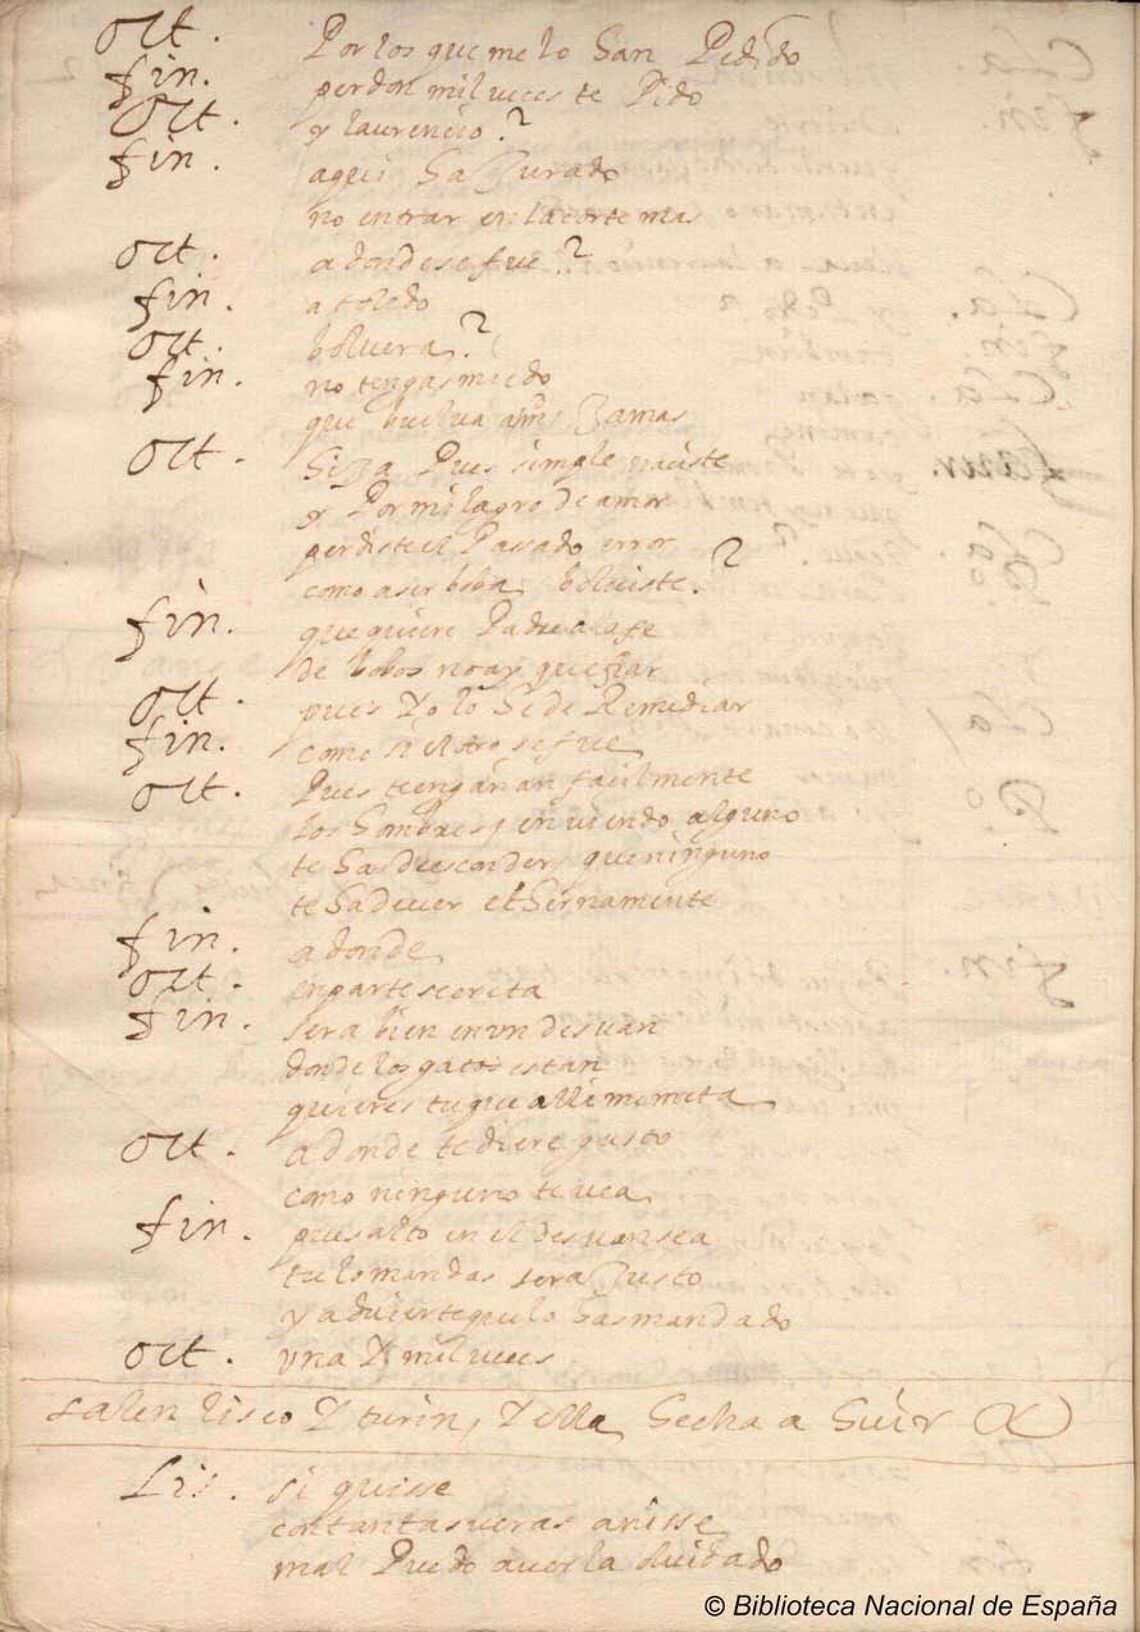 oct. Por los que me lo han Pedido
fin. perdon mil veces te Pido
oct. y laurencio?
fin. aqui ha Jurado
no entrar en la corte mas
oct. adonde se fue?
fin. a toledo
oct. bolvera?
fin. no tengas miedo
que buelva Jamas
oct. hiJa Pues simple naciste
y Por milagro de amor
perdiste el Pasado error
como a ser boba bolviste?
fin. que quiere Padre a la fe
de bobos no ay que fiar
oct. pues Yo lo he de Remediar
fin. como si el otro se fue
oct. Pues te engañan facilmente
los hombres, en viendo alguno
te has de esconder, que ninguno
te ha de ver eternamente
fin. adonde
oct. en parte secreta
fin. sera bien en vn desvan
donde los gatos estan
quieres tu que alli me meta
oct. adonde te diere gusto
como ninguno te vea
fin. pues alto en el desvan sea
tu lo mandas sera Justo
y advierte que lo has mandado
oct. vna Y mil veces
salen liseo Y turin, Y ella hecha a huir
Lis. si quise
con tantas veras a nisse
mal Puedo averla olvidado
© Biblioteca Nacional de España